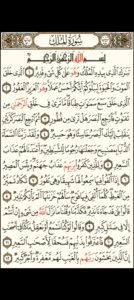 سُورَةُ المُلْكِ
بِسْمِ اللَّهِ الرَّحْمَٰنِ الرَّحِيمِ
تَبَٰرَكَ الَّذِي بِيَدِهِ الْمُلْكُ وَهُوَ عَلَىٰ كُلِّ شَيْءٍ قَدِيرٌ ١ الَّذِي خَلَقَ
الْمَوْتَ وَالْحَيَوٰةَ لِيَبْلُوَكُمْ أَيُّكُمْ أَحْسَنُ عَمَلًا وَهُوَ الْعَزِيزُ الْغَفُورُ ٢
الَّذِي خَلَقَ سَبْعَ سَمَٰوَٰتٍ طِبَاقًا مَّا تَرَىٰ فِي خَلْقِ الرَّحْمَٰنِ مِن
تَفَٰوُتٍ فَارْجِعِ الْبَصَرَ هَلْ تَرَىٰ مِن فُطُورٍ ٣ ثُمَّ ارْجِعِ الْبَصَرَ كَرَّتَيْنِ
يَنقَلِبْ إِلَيْكَ الْبَصَرُ خَاسِئًا وَهُوَ حَسِيرٌ ٤ وَلَقَدْ زَيَّنَّا السَّمَاءَ
الدُّنْيَا بِمَصَٰبِيحَ وَجَعَلْنَٰهَا رُجُومًا لِّلشَّيَٰطِينِ وَأَعْتَدْنَا لَهُمْ عَذَابَ
السَّعِيرِ ٥ وَلِلَّذِينَ كَفَرُوا بِرَبِّهِمْ عَذَابُ جَهَنَّمَ وَبِئْسَ الْمَصِيرُ ٦
إِذَا أُلْقُوا فِيهَا سَمِعُوا لَهَا شَهِيقًا وَهِيَ تَفُورُ ٧ تَكَادُ تَمَيَّزُ
مِنَ الْغَيْظِ كُلَّمَا أُلْقِيَ فِيهَا فَوْجٌ سَأَلَهُمْ خَزَنَتُهَا أَلَمْ يَأْتِكُمْ نَذِيرٌ ٨
قَالُوا بَلَىٰ قَدْ جَاءَنَا نَذِيرٌ فَكَذَّبْنَا وَقُلْنَا مَا نَزَّلَ اللَّهُ مِن شَيْءٍ إِنْ أَنتُمْ
إِلَّا فِي ضَلَٰلٍ كَبِيرٍ ٩ وَقَالُوا لَوْ كُنَّا نَسْمَعُ أَوْ نَعْقِلُ مَا كُنَّا فِي أَصْحَٰبِ
السَّعِيرِ ١٠ فَاعْتَرَفُوا بِذَنبِهِمْ فَسُحْقًا لِّأَصْحَٰبِ السَّعِيرِ ١١
إِنَّ الَّذِينَ يَخْشَوْنَ رَبَّهُم بِالْغَيْبِ لَهُم مَّغْفِرَةٌ وَأَجْرٌ كَبِيرٌ ١٢